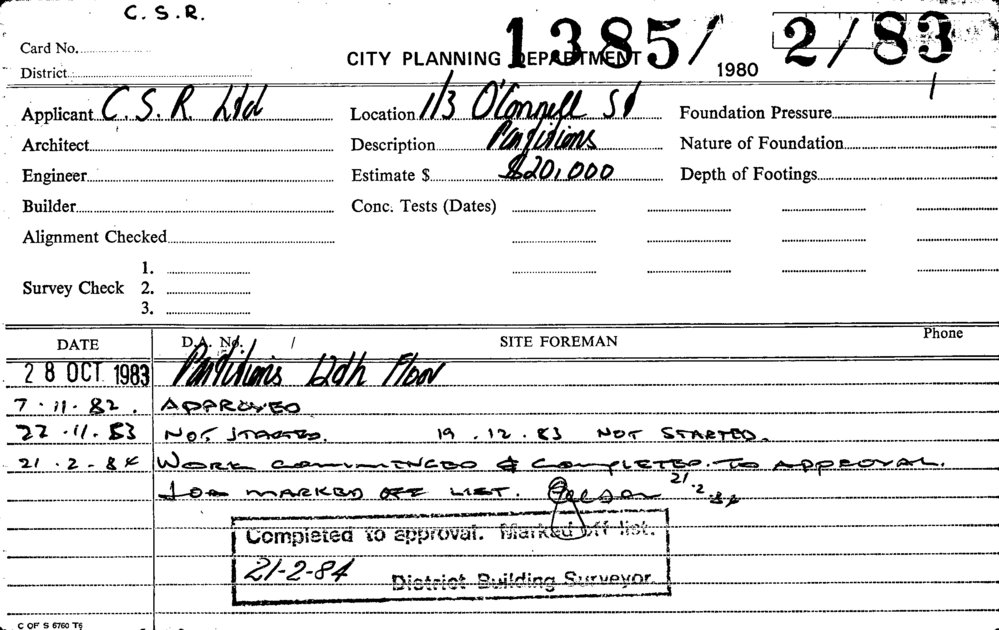 C. S. R.
Card No.
CITY PLANNING DEPARTMENT 1385/ 1980 2/83
District
Applicant C. S. R. Ltd Location 1/3 O'Connell St Foundation Pressure
Architect Description Partitions Nature of Foundation
Engineer Estimate $ $20,000 Depth of Footings
Builder Conc. Tests (Dates)
Alignment Checked
1.
Survey Check 2.
3.
DATE D.A. No. / SITE FOREMAN Phone
28 OCT 1983 Partitions 12th Floor
7.11.82. APPROVED
22.11.83 NOT STARTED. 19.12.83 NOT STARTED.
21.2.84 WORK COMMENCED & COMPLETED TO APPROVAL.
JOB MARKED OFF LIST. 21.2.84
Completed to approval. Marked off list.
21-2-84 District Building Surveyor.
C OF S 6760 T6